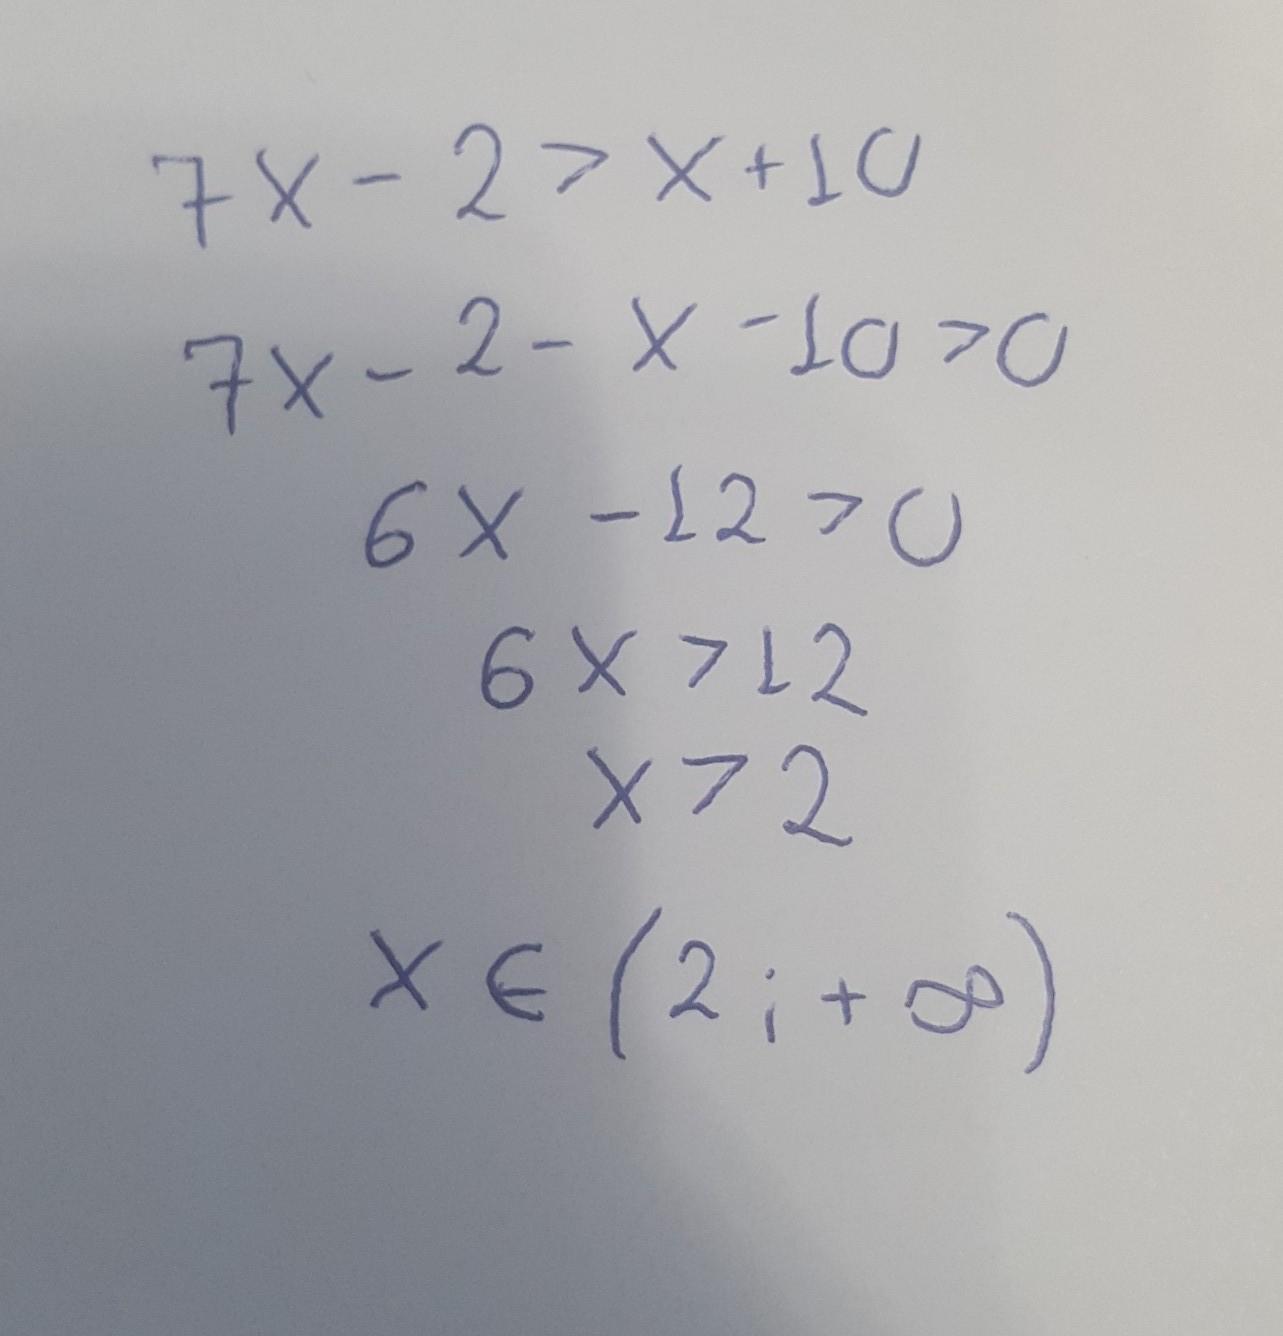 7x - 2 > x + 10
7x - 2 - x - 10 > 0
6x - 12 > 0
6x > 12
x > 2
x ∈ (2 ; + ∞)